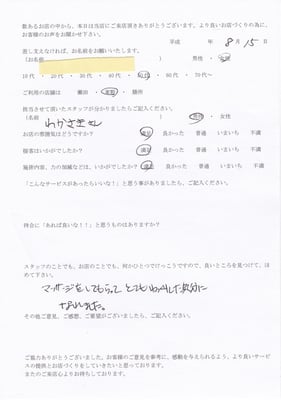 数あるお店の中から、本日は当店にご来店頂きありがとうございます。より良いお店づくりの為に、
お客様の声をお聞かせ下さい。
平成 年 8月 15日
差し支えなければ、お名前をお願いいたします。
(お名前 男性・女性
10代・20代〜 30代〜 40代〜 50代〜 60代〜 70代〜
ご利用の店舗は 瀬田・ ・膳所
担当させて頂いたスタッフが分かりましたらご記入ください。
(名前 わかさきさん ) 男性・女性
お店の雰囲気はどうですか? 満足 良かった 普通 いまいち 不満
接客はいかがでしたか? 満足 良かった 普通 いまいち 不満
施術内容、力の加減などは、いかがでしたか? 満足 良かった 普通 いまいち 不満
「こんなサービスがあったらいいな!」と思う事がありましたら、ご記入ください。
待合に「あれば良いな!!」と思うものはありますか?
スタッフのことでも、お店のことでも、何かひとつでけっこうですので、良いところを見つけて、ほ
めて下さい。
マッサージをしてもらって とてもゆったりした気分に
なれました。
その他ご意見、ご感想、ご要望がございましたら、ご記入ください。
ご協力ありがとうございました。お客様のご意見を参考に、感動を与えられるよう、より良いサービ
スの提供とお店づくりをしていきたいと思っております。
またのご来店心よりお待ちしております。